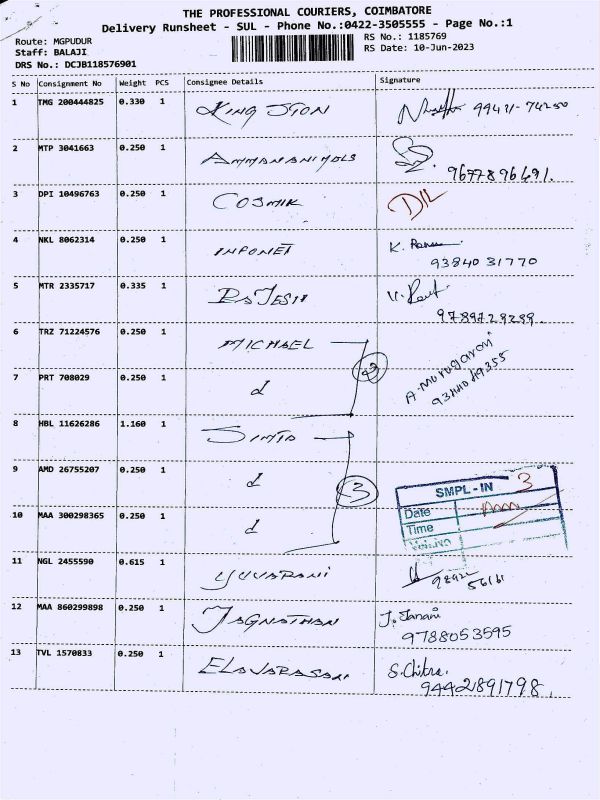 THE PROFESSIONAL COURIERS, COIMBATORE
Delivery Runsheet - SUL - Phone No.:0422-3505555 - Page No.:1
Route: MGPUDUR
Staff: BALAJI
DRS No.: DCJB118576901
RS No.: 1185769
RS Date: 10-Jun-2023
S No Consignment No Weight PCS Consignee Details Signature
1 TMG 200444825 0.330 1 KING STON 99421-74250
2 MTP 3041663 0.250 1 AMMANANIMOLS
9677896691.
3 DPI 10496763 0.250 1 COSMIK D/L
4 NKL 8062314 0.250 1 INFONET K.
9384031770
5 MTR 2335717 0.335 1 RAJESH V.
9789729299.
6 TRZ 71224576 0.250 1 MICHAEL
7 PRT 708029 0.250 1 d 2 A. Murugavani
9344049355
8 HBL 11626286 1.160 1 SIMTA
9 AMD 26755207 0.250 1 d 3
SMPL-IN 3
Date
Time
10 MAA 300298365 0.250 1 d
11 NGL 2455590 0.615 1 YUVARANI
56161
12 MAA 860299898 0.250 1 JAGNATHAN J. Janani
9788053595
13 TVL 1570833 0.250 1 ELAVARASAN S. Chitra.
94442891798